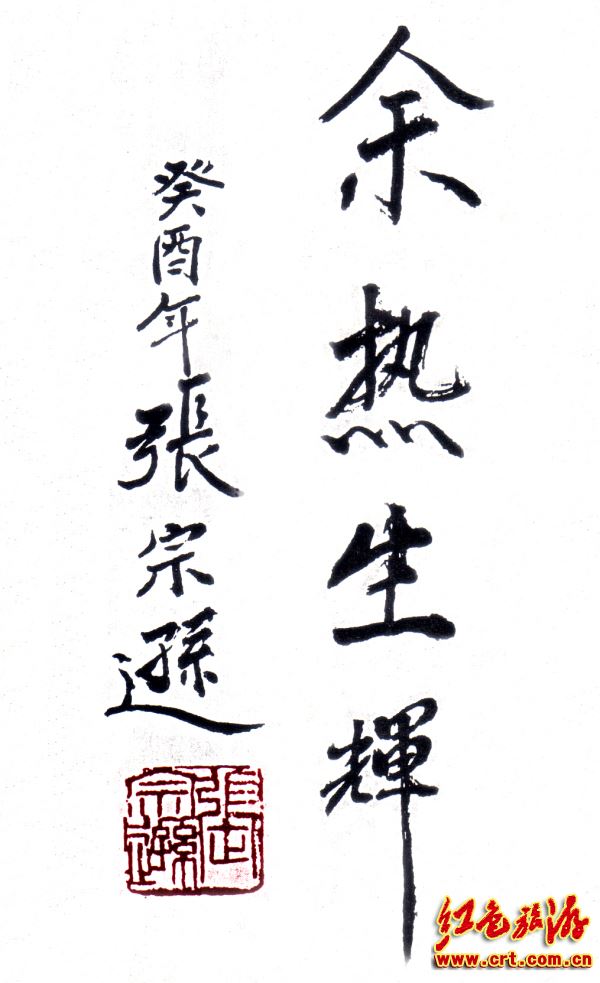 余热生輝
癸酉年張宗遜
红色旅游
www.crt.com.cn